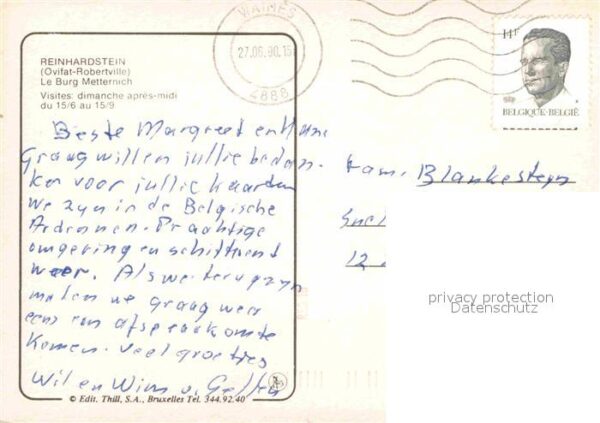 WAIMES
27.06.90.15
4888
11F
BELGIQUE·BELGIË
REINHARDSTEIN
(Ovifat-Robertville)
Le Burg Metternich
Visites: dimanche après-midi
du 15/6 au 15/9
Beste Margreet en
Graag willen jullie bedan-
ken voor jullie kaarten
we zyn in de Belgische
Ardennen. Prachtige
omgeving en schitterent
weer. Als we terug zyn
maken we graag weer
eens een afspraak om te
komen. veel groetjes
Wil en Wim v.
© Edit. Thill, S.A., Bruxelles Tel. 344.92.40
Fam. Blankesteyn
12
privacy protection
Datenschutz